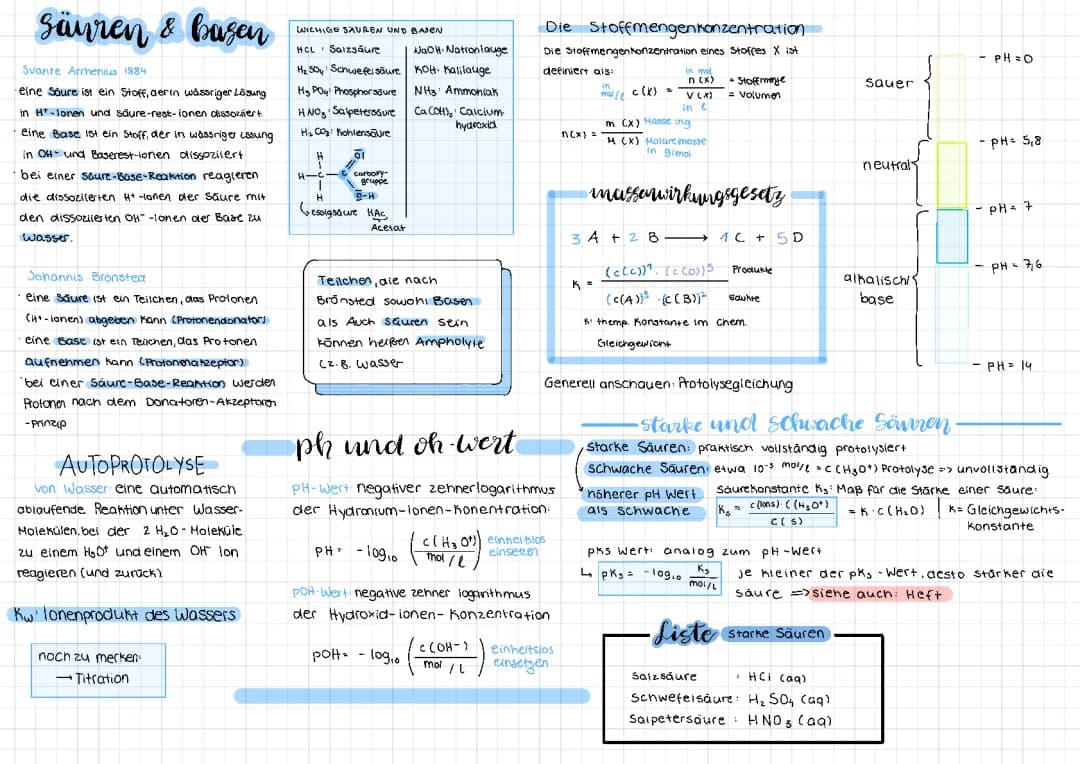 säuren & basen
Svante Arrhenius 1884
· eine Säure ist ein Stoff, der in wässriger Lösung
in H⁺-Ionen und säure-rest-ionen dissoziiert.
· eine Base ist ein Stoff, der in wässriger Lösung
in OH⁻ und Baserest-ionen dissoziiert
· bei einer Säure-Base-Reaktion reagieren
die dissoziierten H⁺-Ionen der Säure mit
den dissoziierten OH⁻-Ionen der Base zu
Wasser.
Johannis Brønsted
· eine Säure ist ein Teilchen, das Protonen
(H⁺-Ionen) abgeben kann (Protonendonator)
· eine Base ist ein Teilchen, das Protonen
aufnehmen kann (Protonenakzeptor)
· bei einer Säure-Base-Reaktion werden
Protonen nach dem Donatoren-Akzeptoren
-Prinzip
AUTOPROTOLYSE
von Wasser: eine automatisch
ablaufende Reaktion unter Wasser-
Molekülen, bei der 2 H₂O-Moleküle
zu einem H₃O⁺ und einem OH⁻ Ion
reagieren (und zurück)
Kw: Ionenprodukt des Wassers
noch zu merken:
→ Titration
WICHIGE SÄUREN UND BASEN
HCL : Salzsäure
H₂SO₄: Schwefelsäure
H₃PO₄: Phosphorsäure
HNO₃: Salpetersäure
H₂CO₃: Kohlensäure
NaOH: Natronlauge
KOH: Kalilauge
NH₃: Ammoniak
Ca(OH)₂: Calcium-
hydroxid
H
H-C-C
H
O
O-H
carboxy-
gruppe
Essigsäure HAc
Acetat
Teilchen, die nach
Brønsted sowohl Basen
als Auch Säuren sein
können heißen Ampholyte
(z.B. Wasser
ph und oh-wert
pH-Wert: negativer zehnerlogarithmus
der Hydronium-Ionen-Konentration:
PH = -log₁₀ (c(H₃O⁺) / mol/l) einheitslos
einsetzen
pOH-Wert: negative zehner logarithmus
der Hydroxid-ionen-Konzentration
pOH = -log₁₀ (c(OH-) / mol/L) einheitslos
einsetzen
Die Stoffmengenkonzentration
Die Stoffmengenkonzentration eines Stoffes X ist
definiert als:
in mol
in mol/l c(X) = n(X) / V(X) = Stoffmenge
= Volumen
in l
n(X) = m(X) / M(X) Masse in g
Molare masse
in g/mol
massenwirkungsgesetz
3 A + 2 B → 1 C + 5 D
K = (c(C))¹ · (c(D))⁵ / (c(A))³ · (c(B))² Produkte
Edukte
K: themp. Konstante im Chem.
Gleichgewicht
Generell anschauen: Protolysegleichung
sauer
neutral
alkalisch/
base
- pH = 0
- pH = 5,8
- pH = 7
- pH = 7,6
- pH = 14
starke und schwache Säuren
Starke Säuren: praktisch vollständig protolysiert
schwache Säuren: etwa 10⁻³ mol/l = c(H₃O⁺) Protolyse => unvollständig
höherer pH Wert
als schwache
Säurekonstante Ks: Maß für die Stärke einer Säure:
Ks = c(Ions) · c(H₃O⁺) / c(S) = K · c(H₂O) | K = Gleichgewichts-
konstante
pKs Wert: analog zum pH-Wert
↳ pKs = -log₁₀ Ks / mol/L je kleiner der pKs-Wert, desto stärker die
säure => siehe auch: Heft
Liste starke Säuren
Salzsäure : HCl (aq)
Schwefelsäure: H₂SO₄ (aq)
Salpetersäure : HNO₃ (aq)